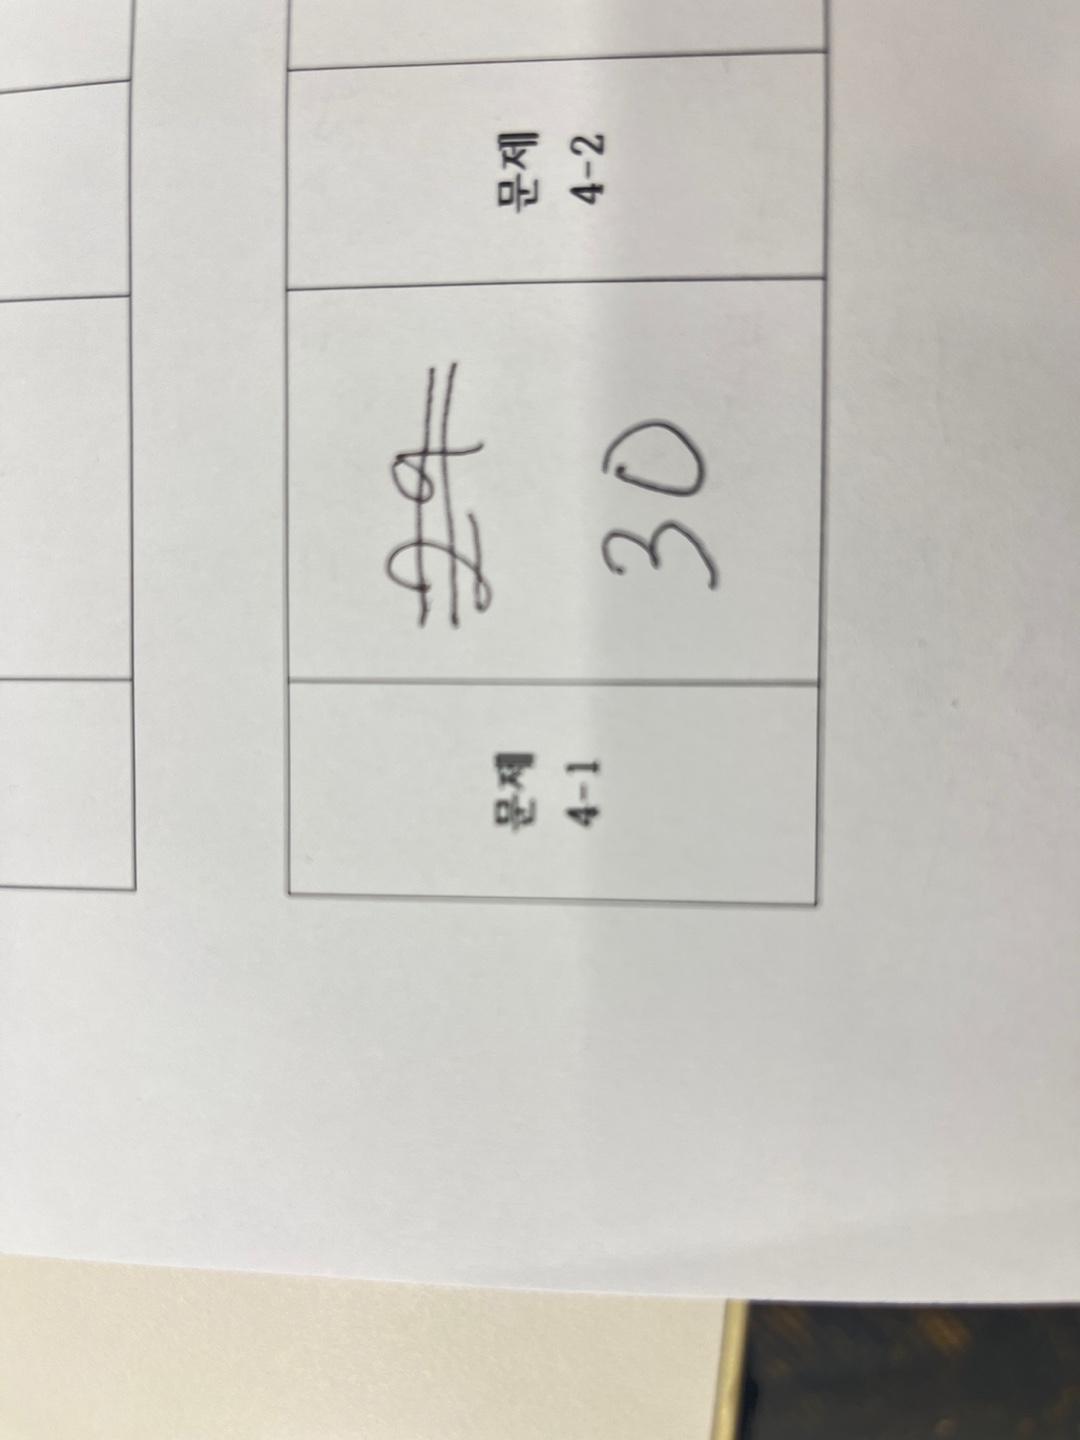 문제
4-1
29
30
문제
4-2